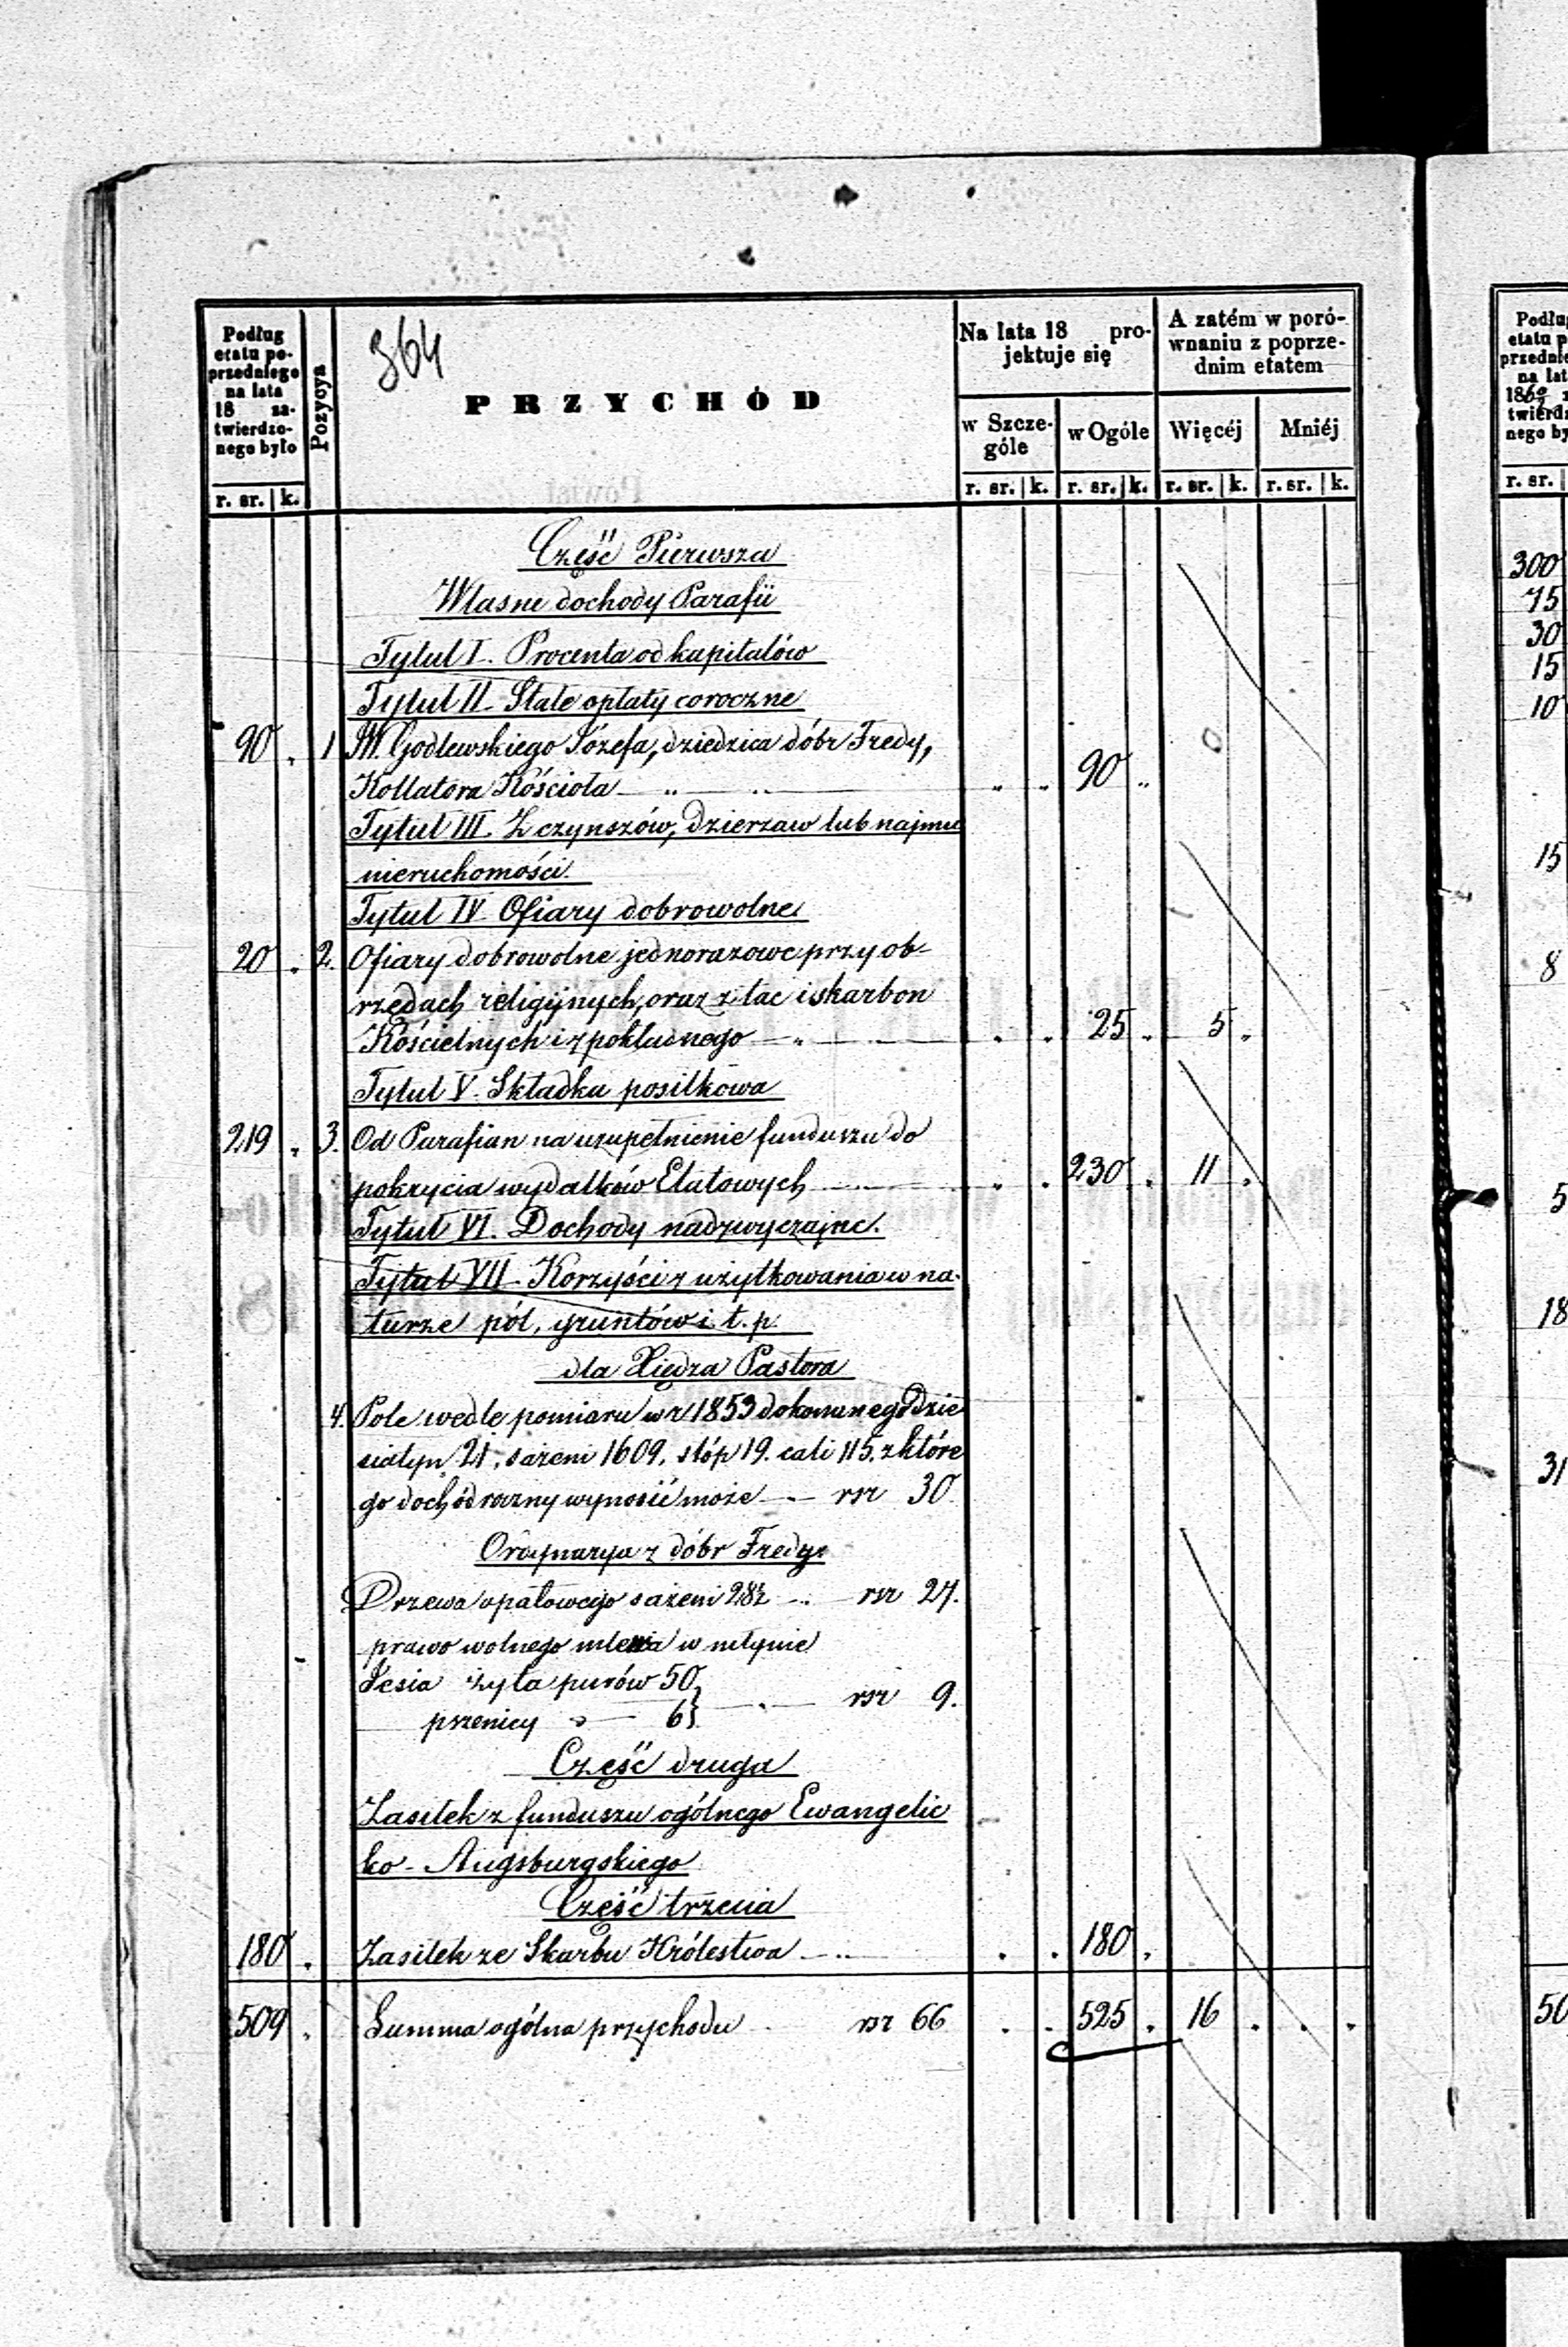 364
Podług etatu poprzedniego na lata 18 zatwierdzonego było
Pozycya
PRZYCHÓD
Na lata 18 projektuje się
A zatém w porównaniu z poprzednim etatem
w Szczególe
w Ogóle
Więcéj
Mniéj
r. sr. k. r. sr. k. r. sr. k. r. sr. k. r. sr. k.
Część Pierwsza
Własne dochody Parafii
Tytuł I. Procenta od kapitałów
Tytuł II. Stałe opłaty coroczne
90 . 1 W. Godlewskiego Józefa, dziedzica dóbr Fredy,
Kollatora Kościoła 90 0
Tytuł III. Z czynszów, dzierzaw lub najmu
nieruchomości.
Tytuł IV. Ofiary dobrowolne
20 . 2. Ofiary dobrowolne jednorazowe przy ob-
rzędach religijnych, oraz z tac i skarbon
Kościelnych i z pokładnego 25 . 5 .
Tytuł V. Składka posiłkowa
219 . 3. Od Parafian na uzupełnienie funduszu do
pokrycia wydatków Etatowych 230 . 11 .
Tytuł VI. Dochody nadzwyczajne.
Tytuł VII. Korzyści z użytkowania w na-
turze pól, gruntów i t. p.
dla Xiędza Pastora
4. Pole wedle pomiaru w r 1853 dokonanego Dzie
siatyn 21, sażeni 1609, stóp 19. cali 115. z które
go dochód roczny wynosić może rsr 30
Ordynarya z dóbr Fredy
Drzewa opałowego sażeni 28½ rsr 27.
prawo wolnego mlewa w młynie
żyta purów 50
pszenicy 6 } rsr 9.
Część druga
Zasiłek z funduszu ogólnego Ewangelic
ko-Augsburgskiego
Część trzecia
180 . Zasiłek ze Skarbu Królestwa . . 180 .
509 . Summa ogólna przychodu rsr 66 . . 525 . 16 . . .
Podług
1863
r. sr.
300
75
30
15
10
15
8
5
18
31
50